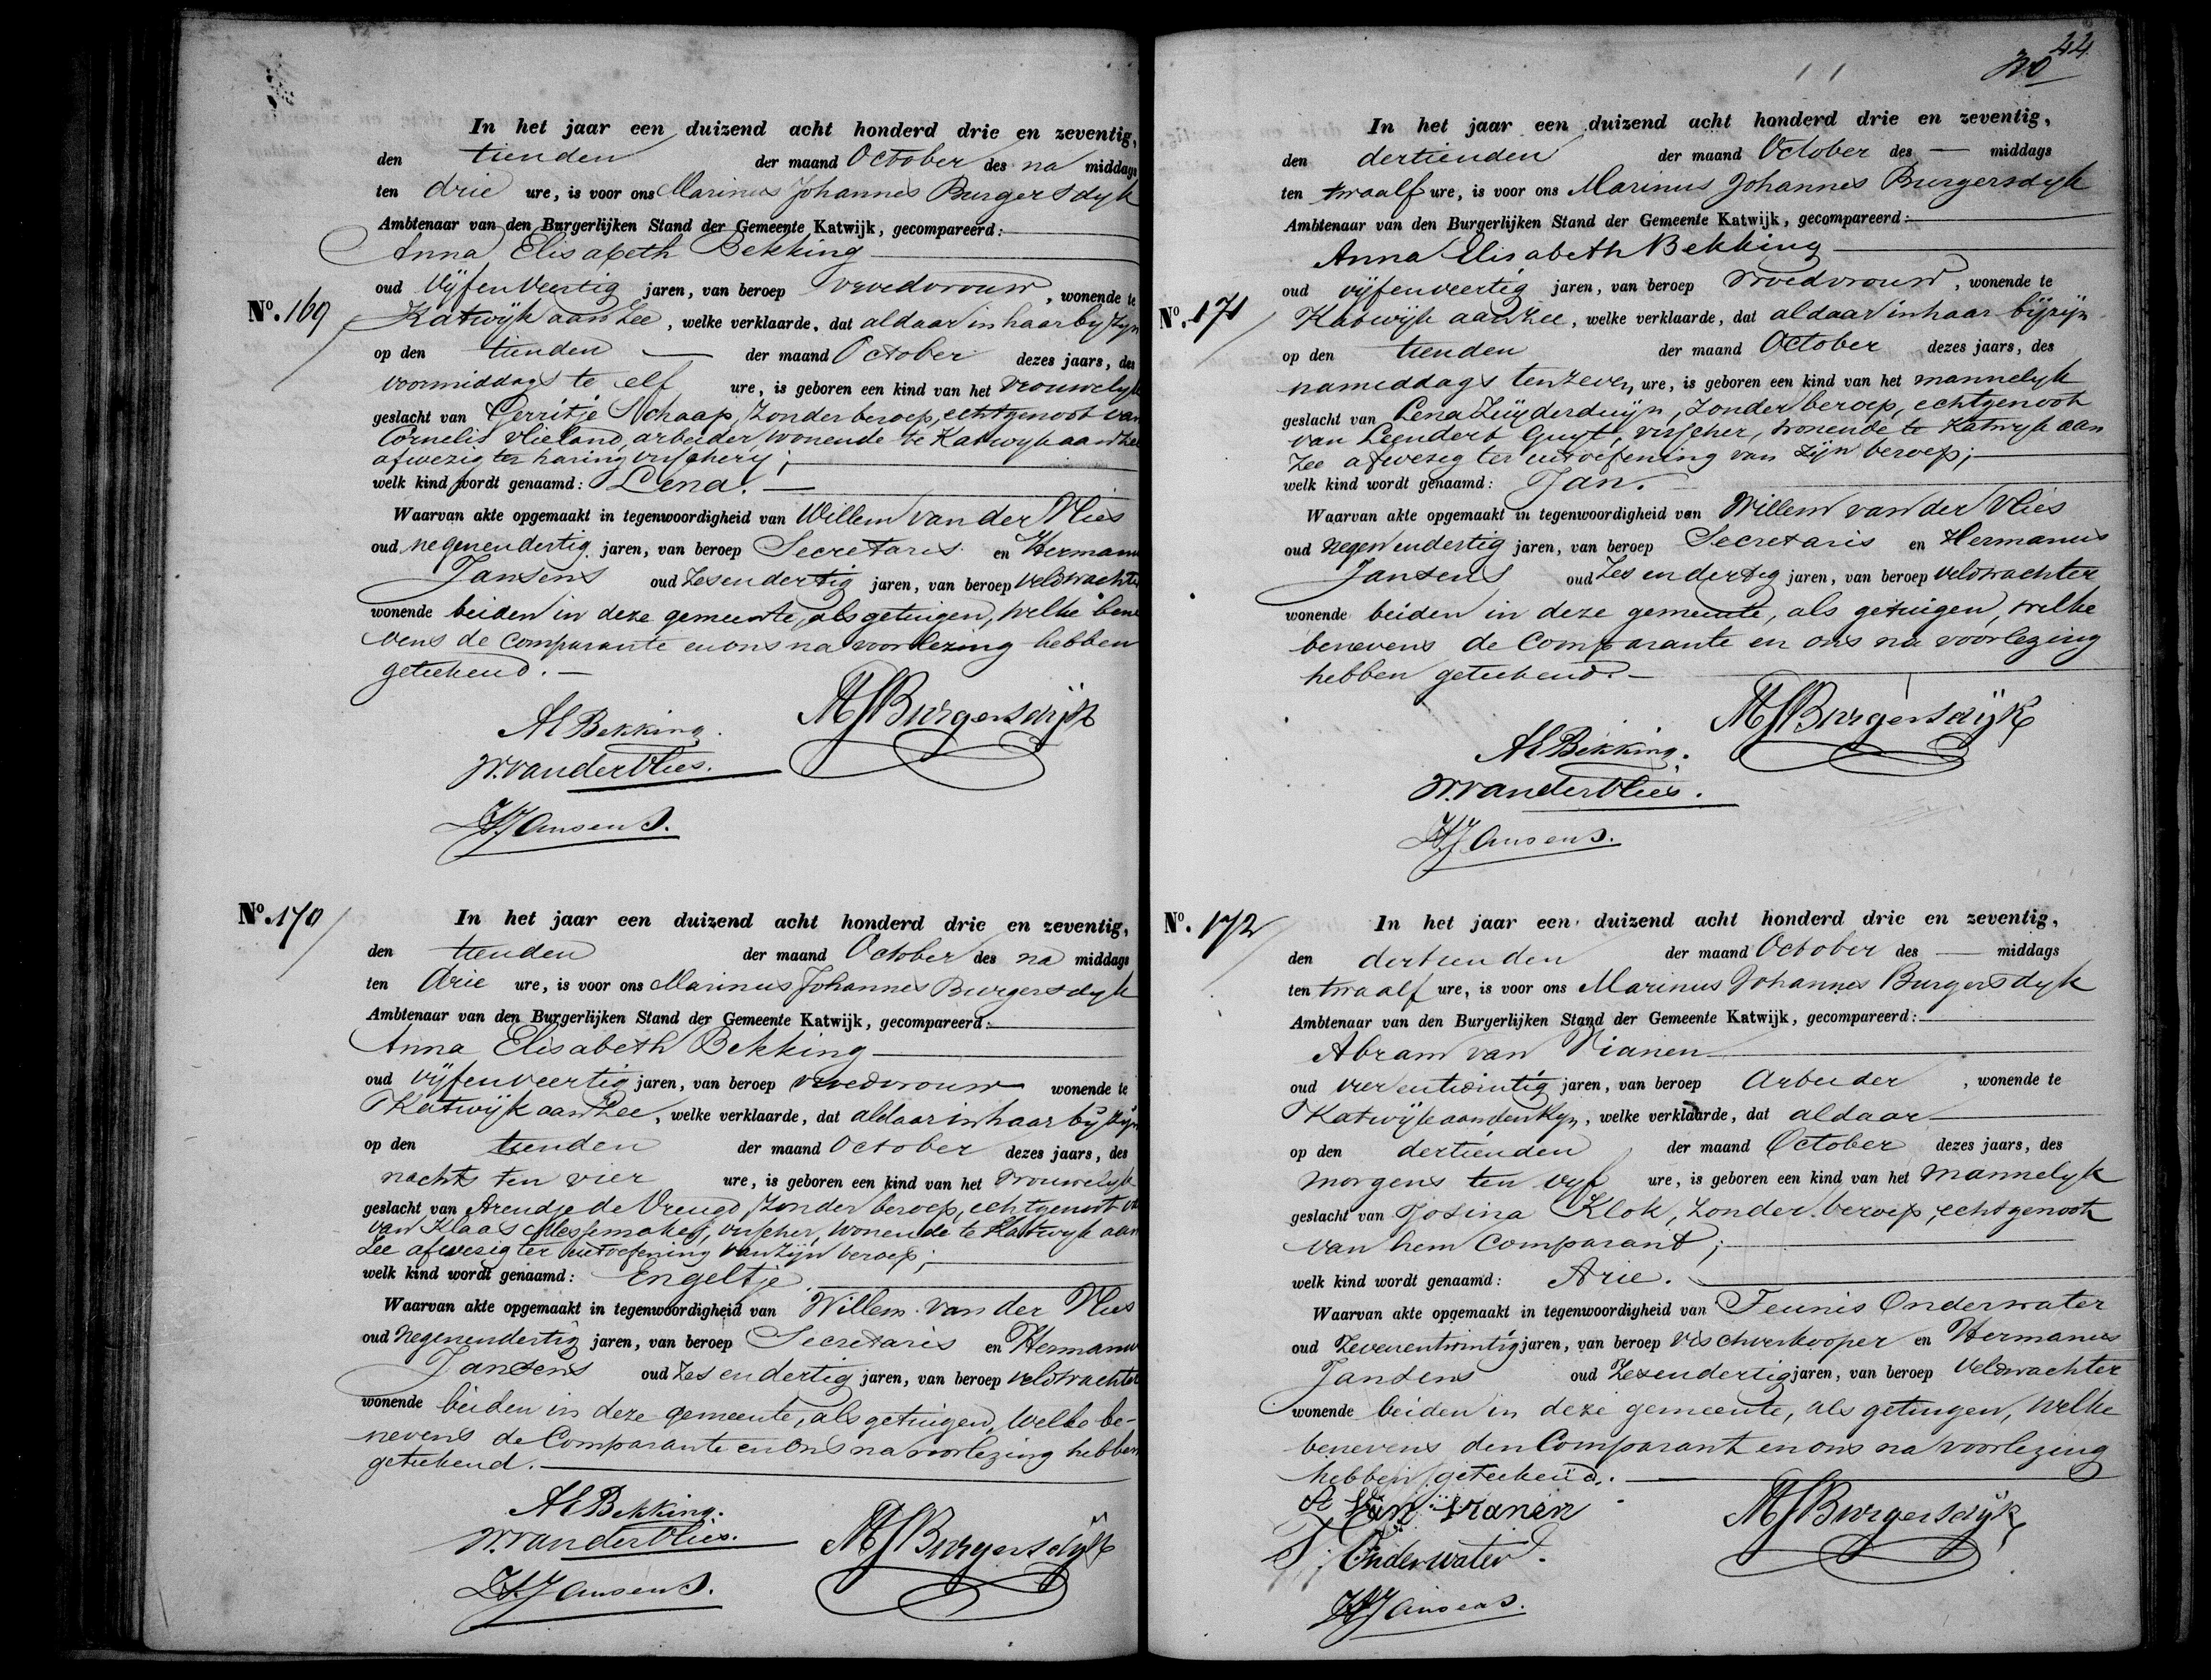 In het jaar een duizend acht honderd drie en zeventig,
den tienden der maand October des na middags
ten drie ure, is voor ons Marinus Johannes Burgersdyk
Ambtenaar van den Burgerlijken Stand der Gemeente Katwijk, gecompareerd:
Anna Elisabeth Bekking
oud vyfenveertig jaren, van beroep vroedvrouw, wonende te
No. 169
Katwyk aan Zee, welke verklaarde, dat aldaar in haar byzyn
op den tienden der maand October dezes jaars, des
voormiddags te elf ure, is geboren een kind van het vrouwelyk
geslacht van Gerritje Schaap, zonder beroep, echtgenoot van
Cornelis Vlieland, arbeider wonende te Katwyk aan Zee
afwezig ter haring visschery;
welk kind wordt genaamd: Lena.
Waarvan akte opgemaakt in tegenwoordigheid van Willem van der Vlies
oud negenendertig jaren, van beroep Secretaris en Hermanus
Jansens oud zesendertig jaren, van beroep veldwachter
wonende beiden in deze gemeente, als getuigen, welke bene
vens de comparante en ons na voorlezing hebben
geteekend.
AE Bekking.
MJBurgersdijk
W. van der Vlies.
HJansens.
No. 170
In het jaar een duizend acht honderd drie en zeventig,
den tienden der maand October des na middags
ten drie ure, is voor ons Marinus Johannes Burgersdyk
Ambtenaar van den Burgerlijken Stand der Gemeente Katwijk, gecompareerd:
Anna Elisabeth Bekking
oud vyfenveertig jaren, van beroep vroedvrouw wonende te
Katwyk aan Zee, welke verklaarde, dat aldaar in haar byzyn
op den tienden der maand October dezes jaars, des
nachts ten vier ure, is geboren een kind van het vrouwelyk
geslacht van Arendje de Vreugd, zonder beroep, echtgenoot
van Klaas Messemaker, visscher, wonende te Katwyk aan
Zee afwezig ter uitoefening van zyn beroep;
welk kind wordt genaamd: Engeltje.
Waarvan akte opgemaakt in tegenwoordigheid van Willem van der Vlies
oud negenendertig jaren, van beroep Secretaris en Hermanus
Jansens oud zes en dertig jaren, van beroep veldwachter
wonende beiden in deze gemeente, als getuigen, welke be-
nevens de Comparante en ons na voorlezing hebben
geteekend.
AE Bekking.
W. van der Vlies.
MJBurgersdijk
HJansens.
44
In het jaar een duizend acht honderd drie en zeventig,
den dertienden der maand October des — middags
ten twaalf ure, is voor ons Marinus Johannes Burgersdyk
Ambtenaar van den Burgerlijken Stand der Gemeente Katwijk, gecompareerd:
Anna Elisabeth Bekking
oud vyfenveertig jaren, van beroep vroedvrouw, wonende te
No. 171
Katwyk aan Zee, welke verklaarde, dat aldaar in haar byzyn
op den tienden der maand October dezes jaars, des
nameddags ten zeven ure, is geboren een kind van het mannelyk
geslacht van Lena Zuyderduyn, zonder beroep, echtgenoot
van Leendert Guyt, visscher, wonende te Katwyk aan
Zee afwezig ter uitoefening van zyn beroep;
welk kind wordt genaamd: Jan.
Waarvan akte opgemaakt in tegenwoordigheid van Willem van der Vlies
oud negen endertig jaren, van beroep Secretaris en Hermanus
Jansens oud zes en dertig jaren, van beroep veldwachter
wonende beiden in deze gemeente, als getuigen, welke
benevens de Comparante en ons na voorlezing
hebben geteekend.
MJBurgersdijk
AE Bekking.
W. van der Vlies.
HJansens.
No. 172
In het jaar een duizend acht honderd drie en zeventig,
den dertienden der maand October des — middags
ten twaalf ure, is voor ons Marinus Johannes Burgersdyk
Ambtenaar van den Burgerlijken Stand der Gemeente Katwijk, gecompareerd:
Abram van Vianen
oud vier entwintig jaren, van beroep Arbeider, wonende te
Katwyk aan den Ryn, welke verklaarde, dat aldaar
op den dertienden der maand October dezes jaars, des
morgens ten vyf ure, is geboren een kind van het mannelyk
geslacht van Josina Klok, zonder beroep, echtgenoot
van hem Comparant;
welk kind wordt genaamd: Arie.
Waarvan akte opgemaakt in tegenwoordigheid van Teunis Onderwater
oud zevenentwintig jaren, van beroep vischverkooper en Hermanus
Jansens oud zesendertig jaren, van beroep veldwachter
wonende beiden in deze gemeente, als getuigen, welke
benevens den Comparant en ons na voorlezing
hebben geteekend.
A van Vianen
MJBurgersdijk
T. Onderwater.
HJansens.